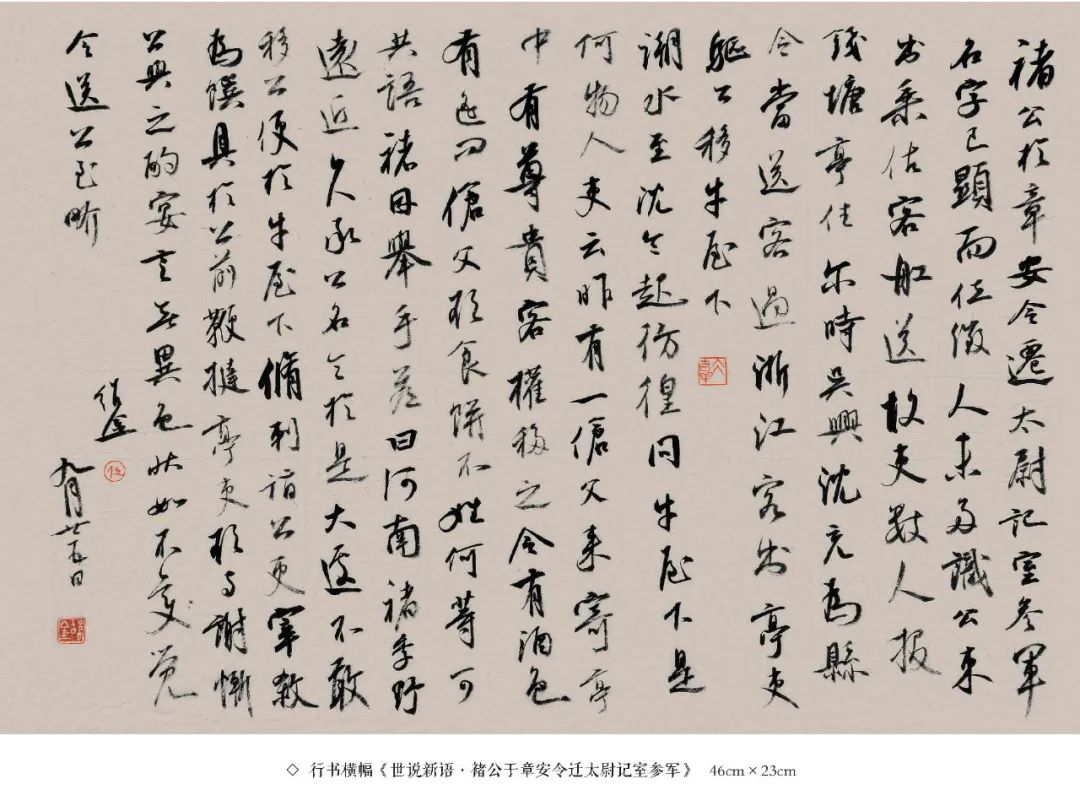 褚公於章安令遷太尉記室參軍
名字已顯而位微人未多識公東
出乘估客船送故吏數人投
錢塘亭住尔時吳興沈充為縣
令當送客過浙江客出亭吏
驅公移牛屋下
潮水至沈令起彷徨問牛屋下是
何物人吏云昨有一傖父來寄亭
中有尊貴客權移之令有酒色
有遙問傖父欲食餅不姓何等可
共語褚因舉手荅曰河南褚季野
遠近久承公名令於是大遽不敢
移公便於牛屋下脩刺詣公更宰殺
為饌具於公前鞭撻亭吏欲以謝慚
公與之酌宴言無異色狀如不覺
令送公至界
九月廿五日
◇ 行书横幅《世说新语·褚公于章安令迁太尉记室参军》 46cm×23cm